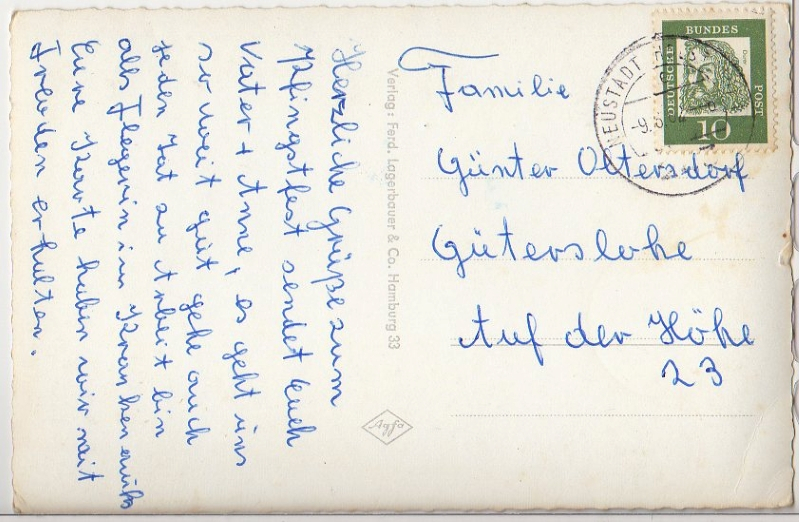 Herzliche Grüße zum
Pfingstfest sendet Euch
Vater + Anne, es geht uns
so weit gut gehe auch
jeden Tat zu Arbeit bin
als Flegerin im Krankenauhs
Eure Karte haben wir mit
Freuden erhalten.
Verlag: Ferd. Lagerbauer & Co. Hamburg 33
Agfa
Familie
Günter Oltersdorf
Güterslohe
Auf der Höhe
23
NEUSTADT
-9.6.
DEUTSCHE
BUNDES
POST
Dürer
10